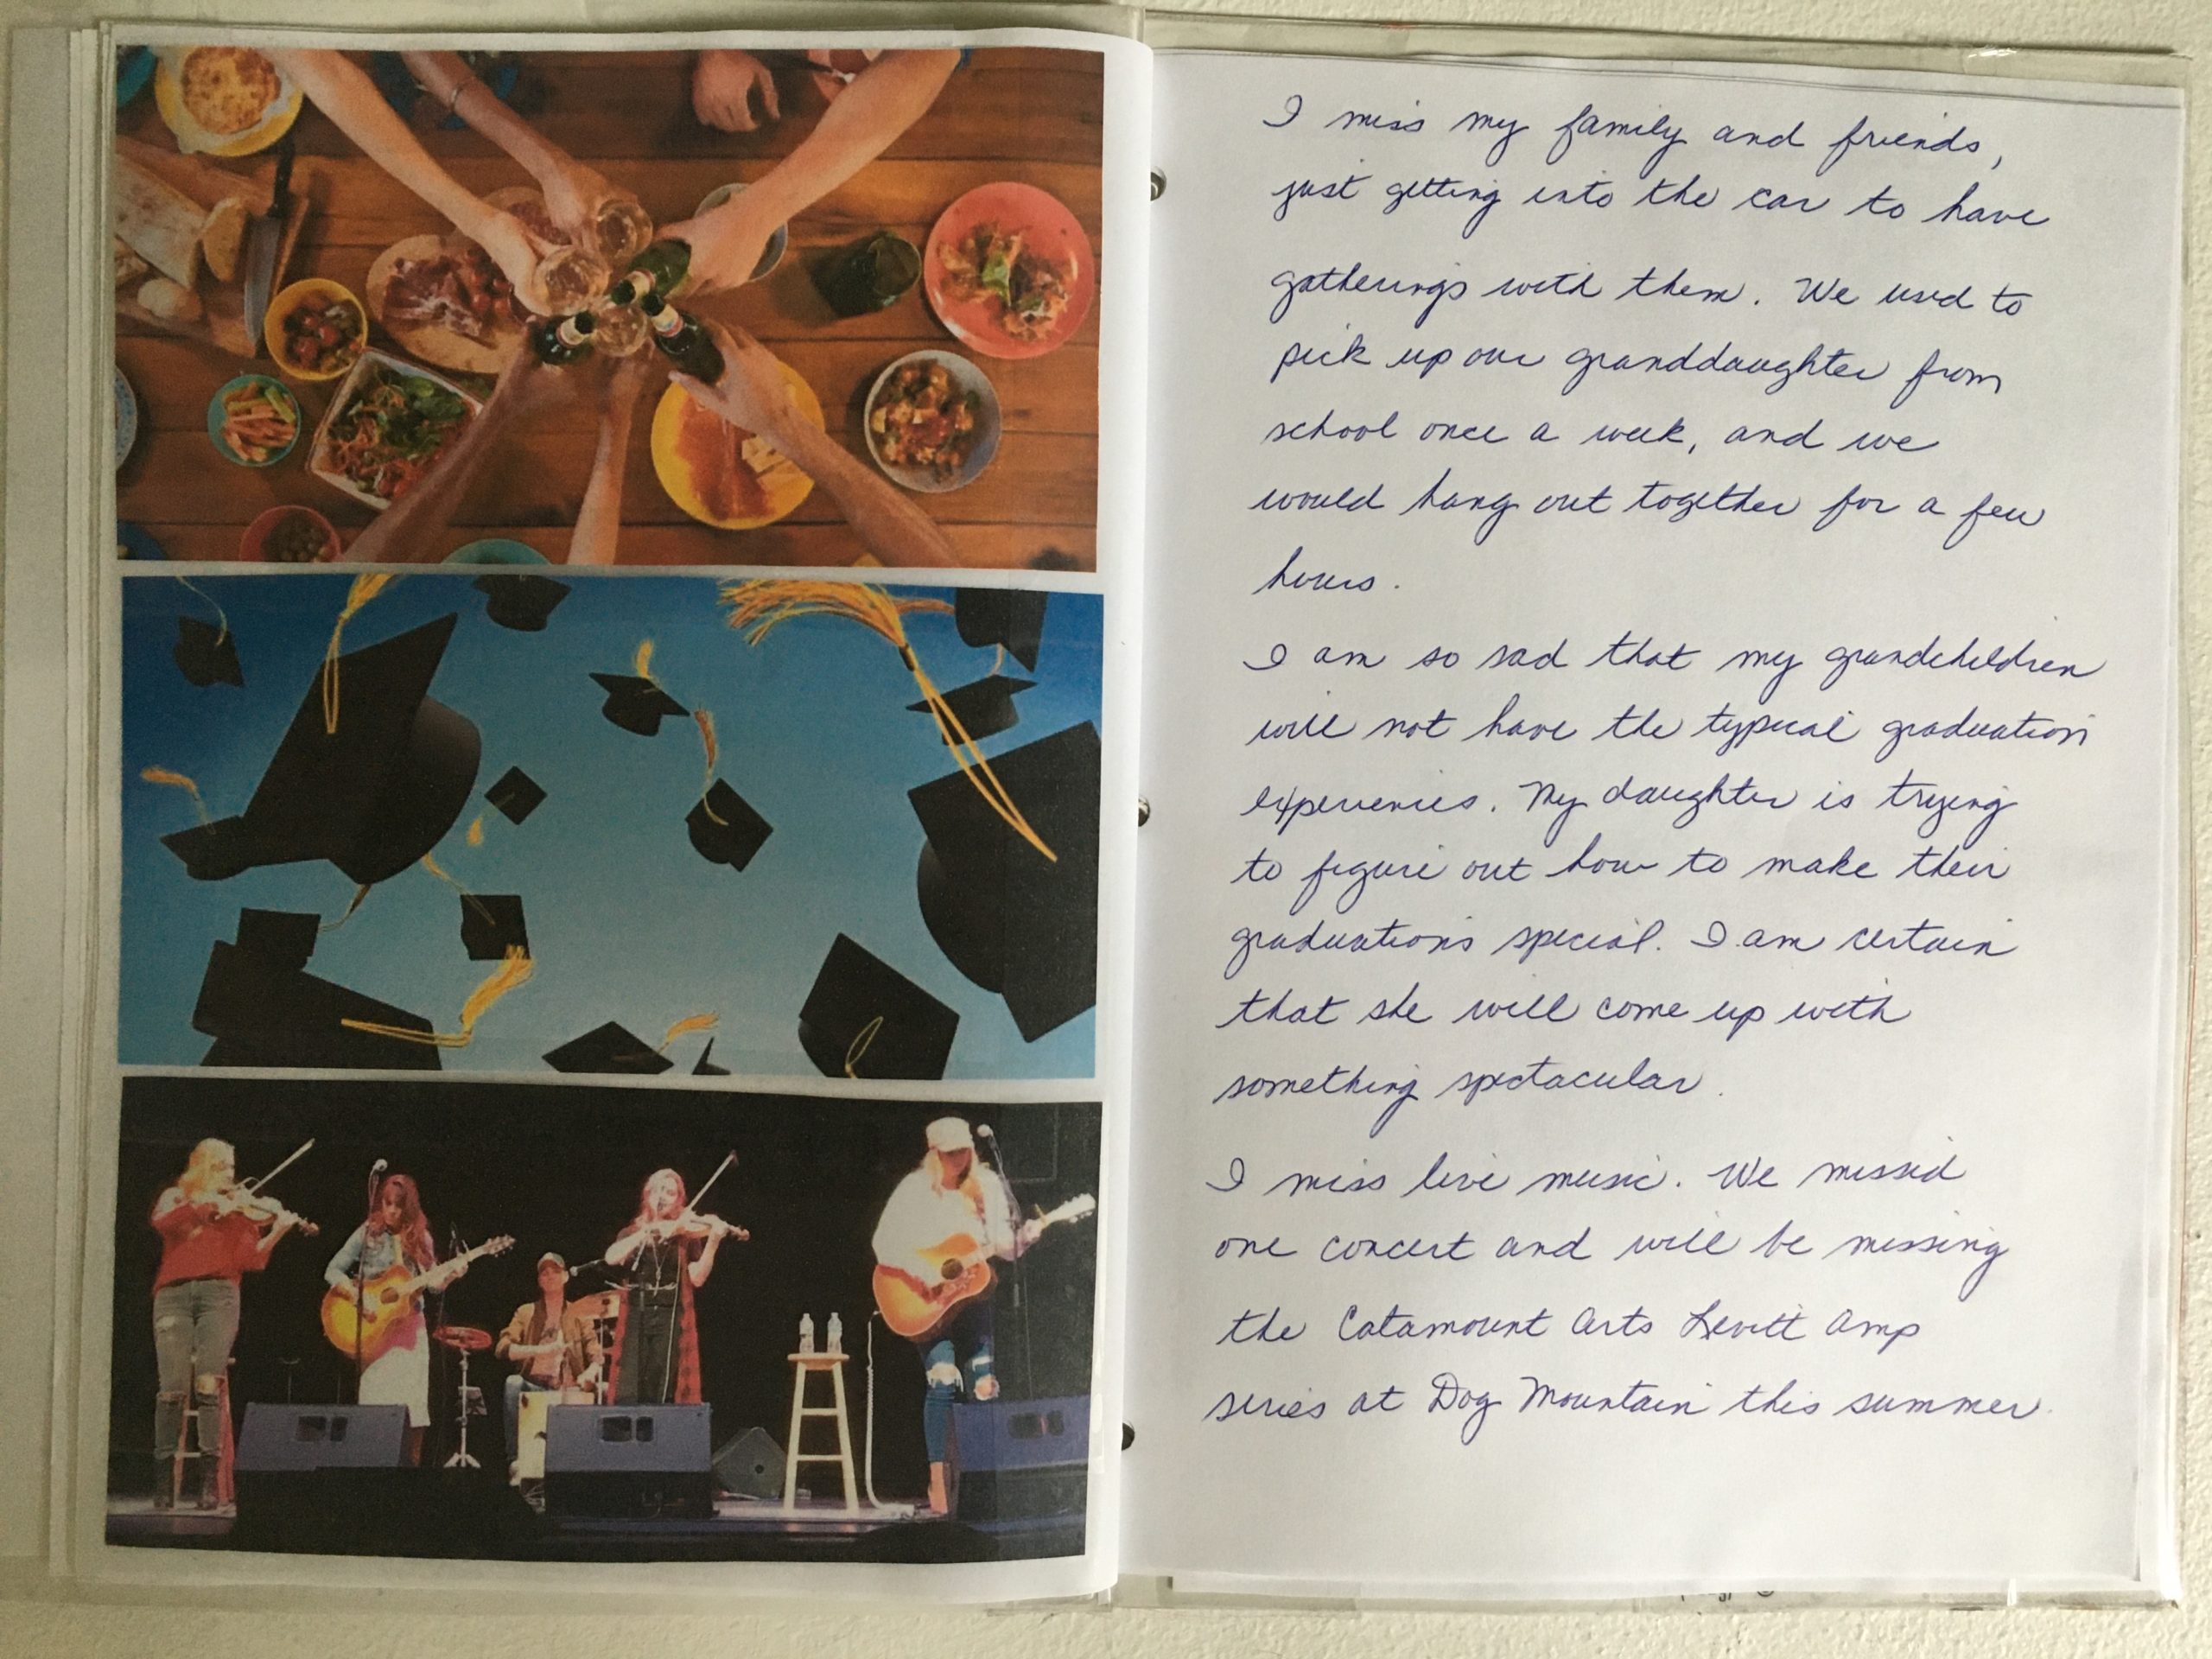 I miss my family and friends,
just getting into the car to have
gatherings with them. We used to
pick up our granddaughter from
school once a week, and we
would hang out together for a few
hours.
I am so sad that my grandchildren
will not have the typical graduation
experiences. My daughter is trying
to figure out how to make their
graduations special. I am certain
that she will come up with
something spectacular.
I miss live music. We missed
one concert and will be missing
the Catamount Arts Levitt Amp
series at Dog Mountain this summer.